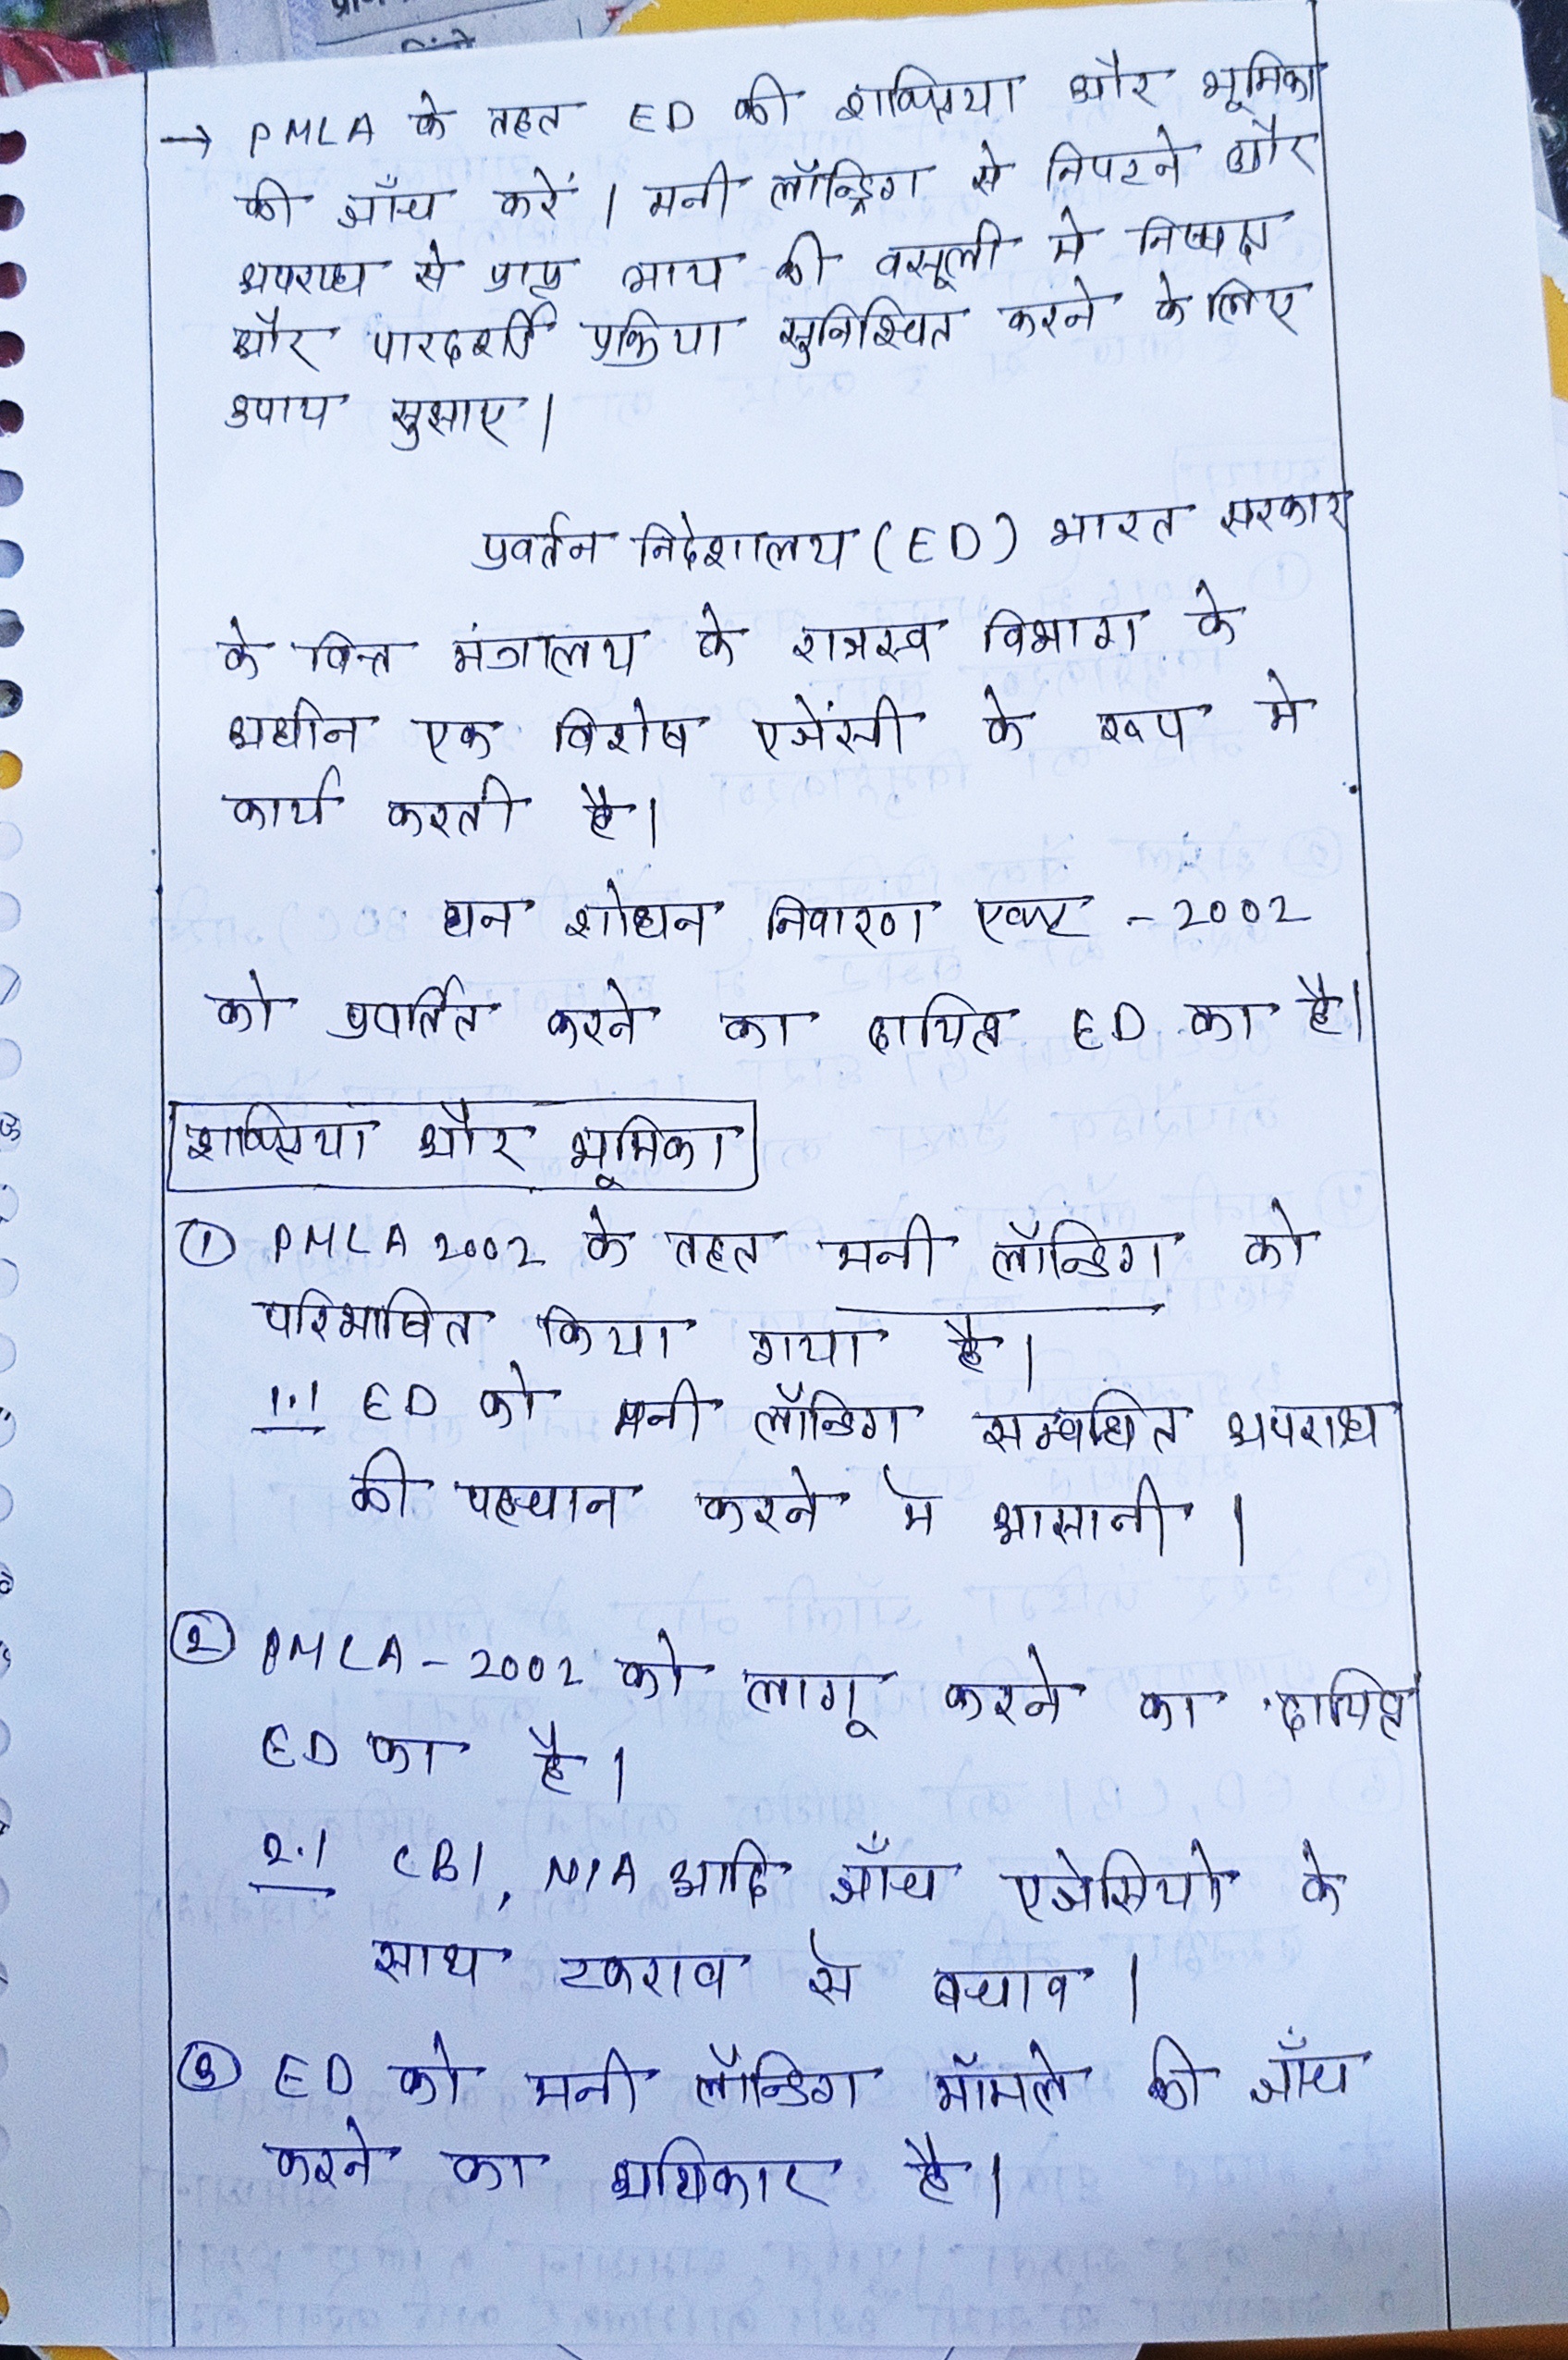 → PMLA के तहत ED की शक्तियां और भूमिका
की जाँच करें । मनी लॉन्ड्रिग से निपटने और
अपराध से प्राप्त आय की वसूली मे निष्पक्ष
और पारदर्शी प्रक्रिया सुनिश्चित करने के लिए
उपाय सुझाए ।
प्रवर्तन निदेशालय (ED) भारत सरकार
के वित्त मंत्रालय के राजस्व विभाग के
अधीन एक विशेष एजेंसी के रूप मे
कार्य करती है ।
धन शोधन निवारण एक्ट - 2002
को प्रवर्तित करने का दायित्व ED का है ।
शक्तियां और भूमिका
① PMLA 2002 के तहत मनी लॉन्डिग को
परिभाषित किया गया है ।
1.1 ED को मनी लॉन्डिग सम्बंधित अपराध
की पहचान करने मे आसानी ।
② PMLA - 2002 को लागू करने का दायित्व
ED का है ।
2.1 CBI, NIA आदि जाँच एजेसियो के
साथ टकराव से बचाव ।
③ ED को मनी लॉन्डिग मॉमले की जाँच
करने का अधिकार है ।